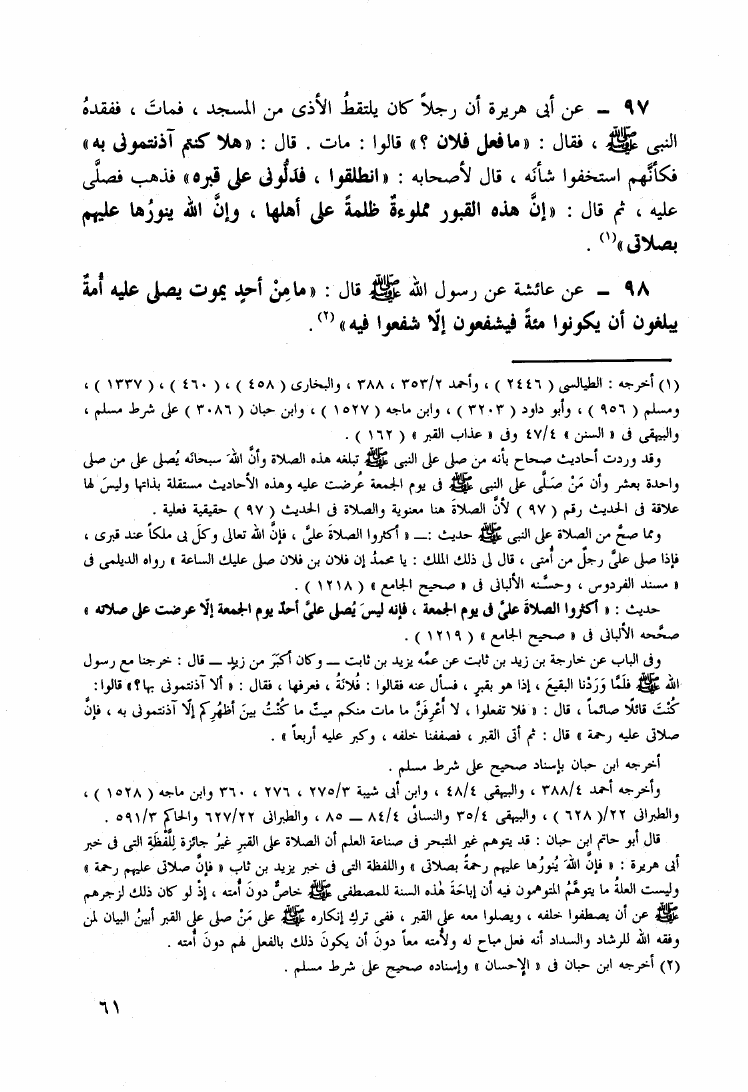 ٩٧ ــ عن أبى هريرة أن رجلاً كان يلتقطُ الأذى من المسجد ، فماتَ ، ففقدهُ
النبى ﷺ ، فقال : «ما فعل فلان ؟» قالوا : مات . قال : «هلا كنتم آذنتمونى به»
فكأنَّهم استخفوا شأنَه ، قال لأصحابه : «انطلقوا ، فدَلُّونى على قبره» فذهب فصلَّى
عليه ، ثم قال : «إنَّ هذه القبور مملوءةٌ ظلمةً على أهلها ، وإنَّ الله ينورُها عليهم
بصلاتى»(١) .
٩٨ ــ عن عائشة عن رسول الله ﷺ قال : «ما مِنْ أحدٍ يموت يصلى عليه أُمةٌ
يبلغون أن يكونوا مئةً فيشفعون إلّا شفعوا فيه» (٢).
(١) أخرجه : الطيالسى ( ٢٤٤٦ ) ، وأحمد ٣٥٣/٢ ، ٣٨٨ ، والبخارى ( ٤٥٨ ) ، ( ٤٦٠ ) ، ( ١٣٣٧ ) ،
ومسلم ( ٩٥٦ ) ، وأبو داود ( ٣٢٠٣ ) ، وابن ماجه ( ١٥٢٧ ) ، وابن حبان ( ٣٠٨٦ ) على شرط مسلم ،
والبيهقى فى « السنن » ٤٧/٤ وفى « عذاب القبر » ( ١٦٢ ) .
وقد وردت أحاديث صحاح بأنه من صلى على النبى ﷺ تبلغه هذه الصلاة وأنَّ اللهَ سبحانَه يُصلى على من صلى
واحدة بعشر وأن مَنْ صَلَّى على النبى ﷺ فى يوم الجمعة عُرضت عليه وهذه الأحاديث مستقلة بذاتها وليسَ لها
علاقة فى الحديث رقم ( ٩٧ ) لأنَّ الصلاةَ هنا معنوية والصلاة فى الحديث ( ٩٧ ) حقيقية فعلية .
ومما صحَّ من الصلاة على النبى ﷺ حديث :ــ « أكثروا الصلاةَ علىَّ ، فإنَّ الله تعالى وكلَ بى ملكاً عند قبرى ،
فإذا صلى علىَّ رجلٌ من أُمتى ، قال لى ذلك الملك : يا محمدُ إن فلان بن فلان صلى عليك الساعة » رواه الديلمى فى
« مسند الفردوس ، وحسَّنه الألبانى فى « صحيح الجامع » ( ١٢١٨ ) .
حديث : « أكثروا الصلاةَ علىَّ فى يوم الجمعة ، فإنه ليسَ يُصلى علىَّ أحدٌ يوم الجمعة إلّا عرضت على صلاته »
صحَّحه الألبانى فى « صحيح الجامع » ( ١٢١٩ ) .
وفى الباب عن خارجة بن زيد بن ثابت عن عمِّه يزيد بن ثابت ــ وكان أكبَرَ من زيدٍ ــ قال : خرجنا مع رسول
الله ﷺ فلَمَّا وَرَدْنا البقيعَ ، إذا هو بقبرٍ ، فسأل عنه فقالوا : فُلانَةُ ، فعرفها ، فقال : « ألا آذنتمونى بها؟» قالوا:
كُنْتَ قائلًا صائماً ، قال : « فلا تفعلوا ، لا أعْرِفَنَّ ما مات منكم ميتٌ ما كُنْتُ بينَ أظهُرِكم إلّا آذنتمونى به ، فإنَّ
صلاتى عليه رحمة » قال : ثم أتى القبر ، فصففنا خلفه ، وكبر عليه أربعاً » .
أخرجه ابن حبان بإسناد صحيح على شرط مسلم .
وأخرجه أحمد ٣٨٨/٤ ، والبيهقى ٤٨/٤ ، وابن أبى شيبة ٢٧٥/٣ ، ٢٧٦ ، ٣٦٠ وابن ماجه ( ١٥٢٨ ) ،
والطبرانى ٢٢/( ٦٢٨ ) ، والبيهقى ٣٥/٤ والنسائى ٨٤/٤ ــ ٨٥ ، والطبرانى ٦٢٧/٢٢ والحاكم ٥٩١/٣ .
قال أبو حاتم ابن حبان : قد يتوهم غير المتبحر فى صناعة العلم أن الصلاة على القبرِ غيرُ جائزة لِلَّفْظَةِ التى فى خبر
أبى هريرة : « فإنَّ اللهَ يُنورُها عليهم رحمةً بصلاتى » واللفظة التى فى خبر يزيد بن ثاب « فإنَّ صلاتى عليهم رحمة »
وليست العلةُ ما يتوهَّمُ المتوهمون فيه أن إباحَةَ هٰذه السنة للمصطفى ﷺ خاصٌّ دونَ أُمته ، إذْ لو كان ذلك لزجرهم
ﷺ عن أن يصطفوا خلفه ، ويصلوا معه على القبر ، ففى تركِ إنكاره ﷺ على مَنْ صلى على القبر أبينُ البيان لمن
وفقه الله للرشاد والسداد أنه فعل مباح له ولأُمته معاً دونَ أن يكونَ ذلك بالفعل لهم دونَ أُمته .
(٢) أخرجه ابن حبان فى « الإحسان » وإسناده صحيح على شرط مسلم .
٦١